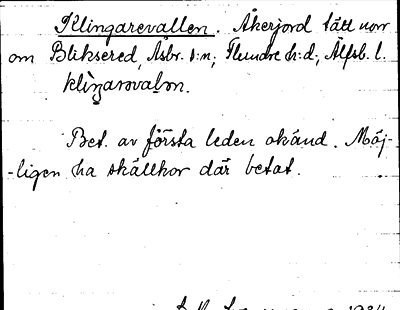 Klingarevallen. Åkerjord tätt norr
om Bliksered, Åsbr. s:n; Flundre h:d; Älfsb. l.
Bet. av första leden okänd. Möj-
-ligen ha skällkor där betat.